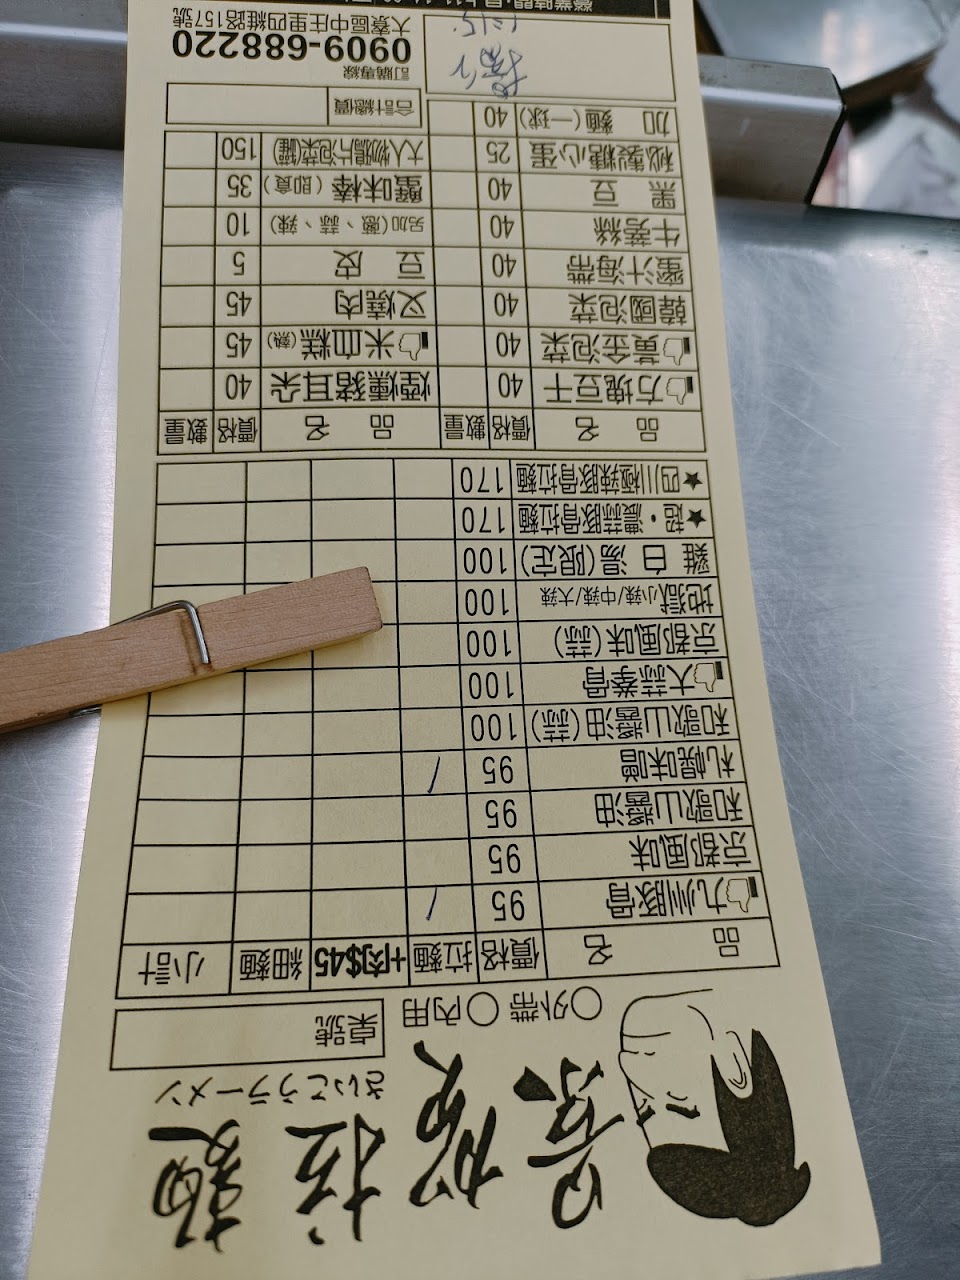 拉麵
さいこうラーメン
○外帶 ○內用 桌號
品 名 價格 拉麵 +肉$45 細麵 小計
九州豚骨 95 /
京都風味 95
和歌山醬油 95
札幌味噌 95 /
和歌山醬油(蒜) 100
大蒜拳骨 100
京都風味(蒜) 100
地獄 小辣/中辣/大辣 100
雞白湯(限定) 100
★超・濃蒜豚骨拉麵 170
★四川極辣豚骨拉麵 170
品 名 價格 數量 品 名 價格 數量
方塊豆干 40 煙燻豬耳朵 40
黃金泡菜 40 米血糕(熱) 45
韓國泡菜 40 叉燒肉 45
蜜汁海帶 40 豆 皮 5
牛蒡絲 40 另加(蔥、蒜、辣) 10
黑 豆 40 蟹味棒(即食) 35
秘製糖心蛋 25 大人物鴨片泡菜(罐) 150
加 麵(一球) 40 合計總價
訂購專線
0909-688220
大寮區中庄里四維路157號
營業時間